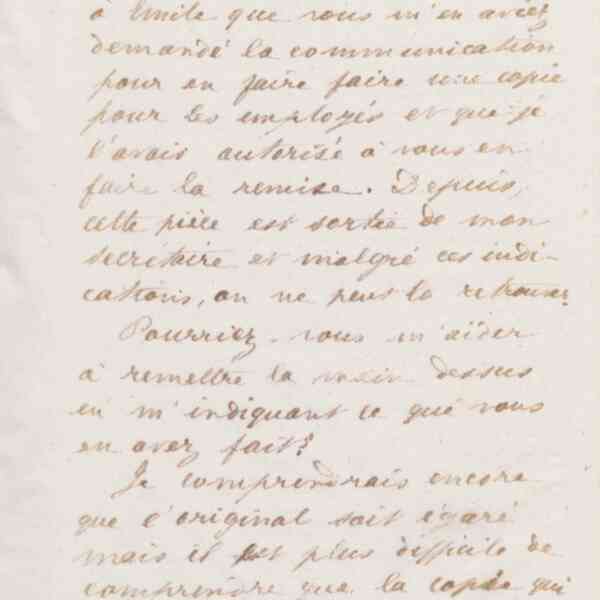 à Emile que vous m'en aviez
demandé la communication
pour en faire faire une copie
pour les employés et que je
l'avais autorisé à vous en
faire la remise. Depuis,
cette pièce est sortie de mon
secrétaire et malgré ces indi-
cations, on ne peut la retrouver
Pourriez-vous m'aider
à remettre la main dessus
en m'indiquant ce que vous
en avez fait?
Je comprendrais encore
que l'original soit égaré
mais il est plus difficile de
comprendre que la copie qui